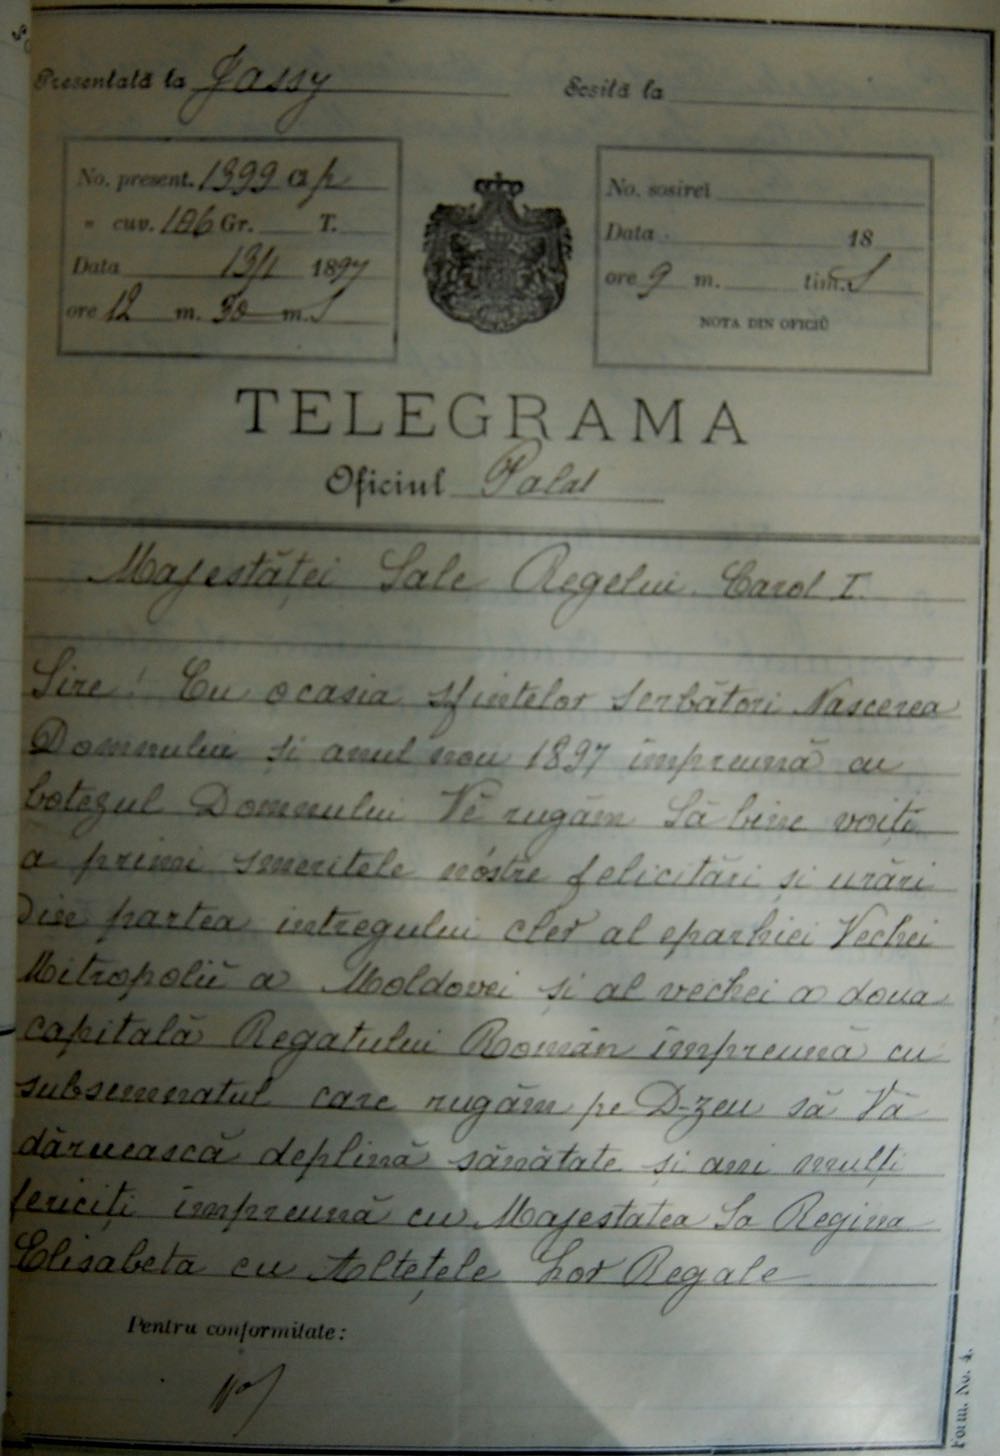 Presentată la Jassy
Sosită la
No. present. 1399
" cuv. 186 Gr. T.
Data 13/1 1897
ore 12 m. 30 m. S
No. sosirei
Data 18
ore 9 m. tim. S
NOTA DIN OFICIŬ
TELEGRAMA
Oficiul Palat
Majestăței Sale Regelui Carol I.
Sire! Cu ocasia sfintelor serbători Nascerea
Domnului și anul nou 1897 împreună cu
botezul Domnului Vĕ rugăm Să bine voiți
a primi smeritele nóstre felicitări și urări
Din partea intregului cler al eparhiei Vechei
Mitropoliĭ a Moldovei și al vechei a doua
capitală Regatului Român împreună cu
subsemnatul care rugăm pe D-zeu să Vă
dăruească deplină sănătate și ani mulți
fericiți împreună cu Majestatea Sa Regina
Elisabeta cu Altețele Lor Regale
Pentru conformitate:
Form. No. 4.